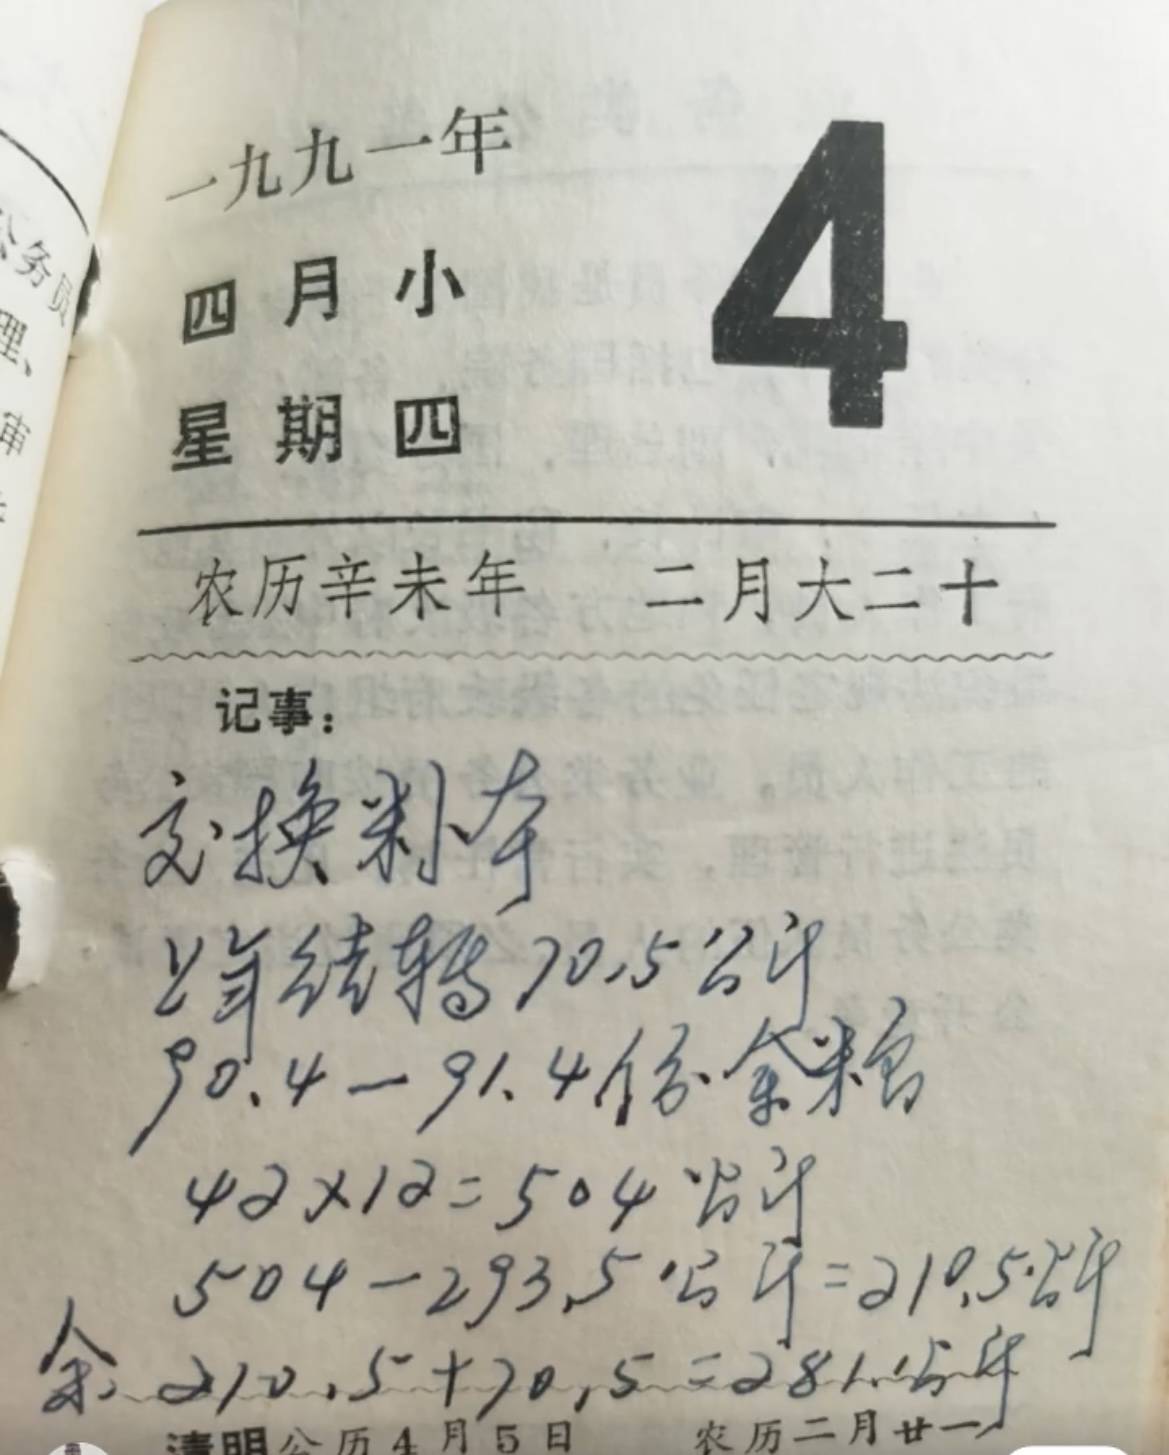 公务员
理、
审
一九九一年
四月小
4
星期四
农历辛未年 二月大二十
记事:
交换粮本
上年结转70.5公斤
90.4—91.4份余粮
42×12=504公斤
504—293.5公斤=210.5公斤
余 210.5+70.5=281公斤
清明公历4月5日 农历二月廿一